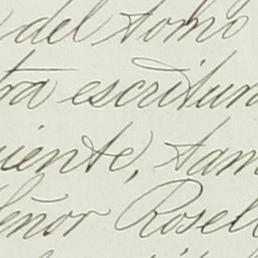 del tomo
tra escritura
uiente, tam
Señor Rosell